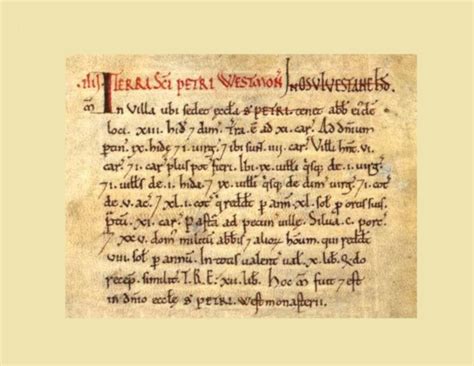 ·iiij· TERRA SCI PETRI WESTMON. IN OSVLVESTANE HD.
M̄ In Villa ubi sedet æccła S PETRI. tenet abb eiꝰde
loci. xiii. hid 7 dim. Tra. ē ad xi. car. Ad dn̄ium
ptin. ix. hidę 7 i. virg. 7 ibi sunt. iiii. car. Villi hn̄t. vi.
car. 7 i. car plus pot fieri. Ibi. ix. uilli qsq; de. i. virg.
7 i. uills de. i. hida. 7 ix. uilli qsq; de dim virg. 7 i. cot
de. v. ac. 7 xl. i. cot q redd̄t p ann. xl. sol p ortis suis.
Ptū. xi. car. Pasta ad pecun uillę. Silua. c. porc.
7 xxv. dom̄ militū abbis 7 alioꝝ houm. qui redd̄t
viii. sol p annū. In totis ualent ual. x. lib. qdo
recep. similit. T.R.E. xii. lib. Hoc m̄ fuit 7 est
in dn̄io ęccłę S PETRI. westmonasterii.